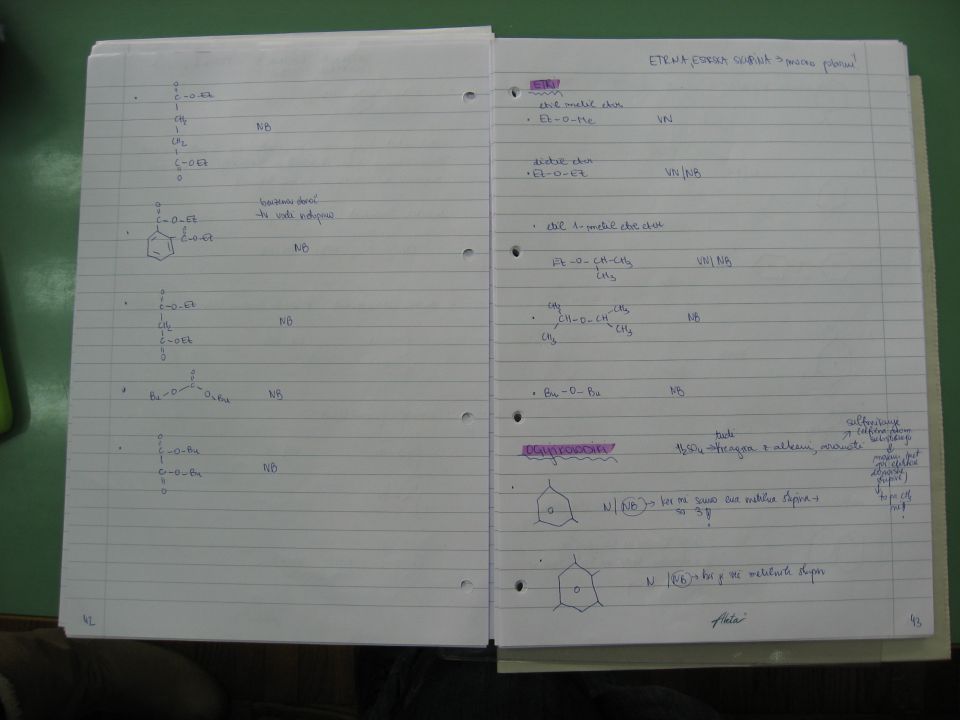 O
C-O-Et
CH2
NB
CH2
C-OEt
O
O
C-O-Et
O
C-O-Et
NB
O
C-O-Et
CH2
NB
C-OEt
O
O
C
O
O
Bu
Bu
NB
O
C-O-Bu
C-O-Bu
NB
O
42
ETRNA, ESTRSKA SKUPINA → močno polarni
ETRI
etil metil eter
Et-O-Me VN
dietil eter
Et-O-Et VN/NB
etil 1-metil etil eter
Et-O-CH-CH3 VN/NB
CH3
CH3 CH3
CH-O-CH NB
CH3 CH3
Bu-O-Bu NB
OGLJIKOVODIKI
tudi
H2SO4 → reagira z alkeni, aromati
sulfoniranje
N/NB → ker ni samo ena metilna skupina
so 3
N/NB → ker je več metilnih skupin
43